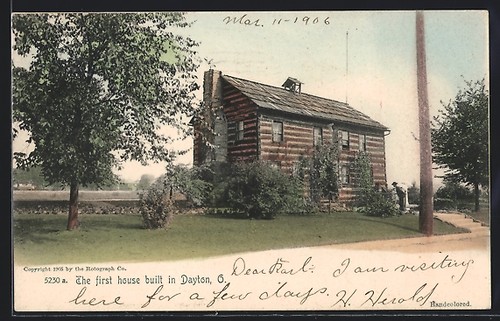 Mar. 11-1906
Copyright 1905 by the Rotograph Co.
5250 a. The first house built in Dayton, O.
Dear Karl- I am visiting
here for a few days. H. Herold
Handcolored.